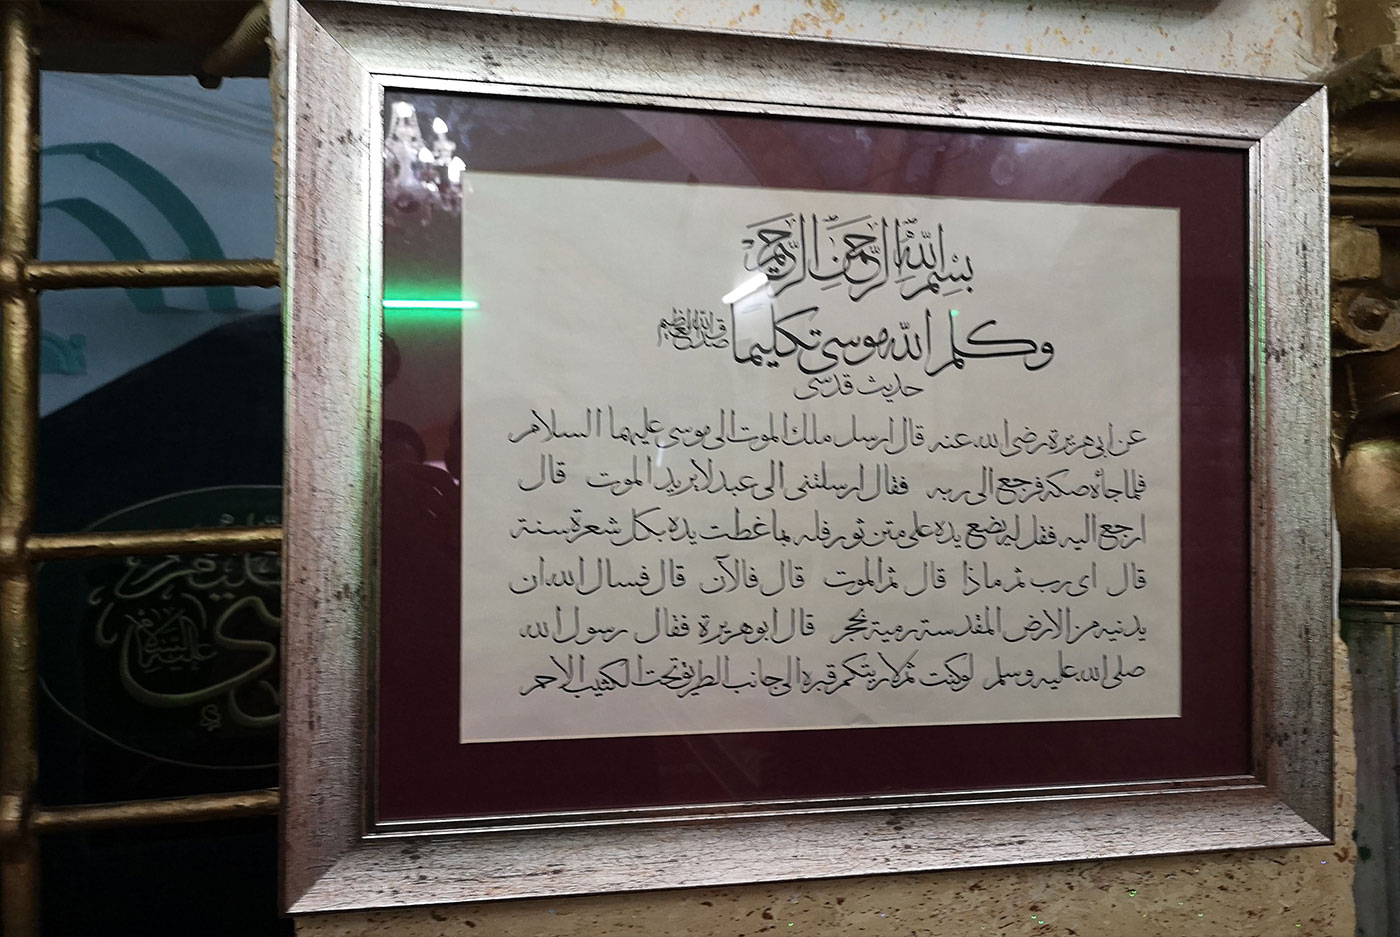 بِسْمِ اللَّهِ الرَّحْمَنِ الرَّحِيمِ
وكلم الله موسى تكليما صدق الله العظيم
حديث قدسى
عن ابى هريرة رضى الله عنه قال ارسل ملك الموت الى موسى عليهما السلام
فلما جاءه صكه فرجع الى ربه فقال ارسلتنى الى عبد لا يريد الموت قال
ارجع اليه فقل له يضع يده على متن ثور فله بما غطت يده بكل شعرة سنة
قال اى رب ثم ماذا قال ثم الموت قال فالآن قال فسال الله ان
يدنيه من الارض المقدسة رمية بحجر قال ابو هريرة فقال رسول الله
صلى الله عليه وسلم لو كنت ثم لاريتكم قبره الى جانب الطريق تحت الكثيب الاحمر
عليه السلام